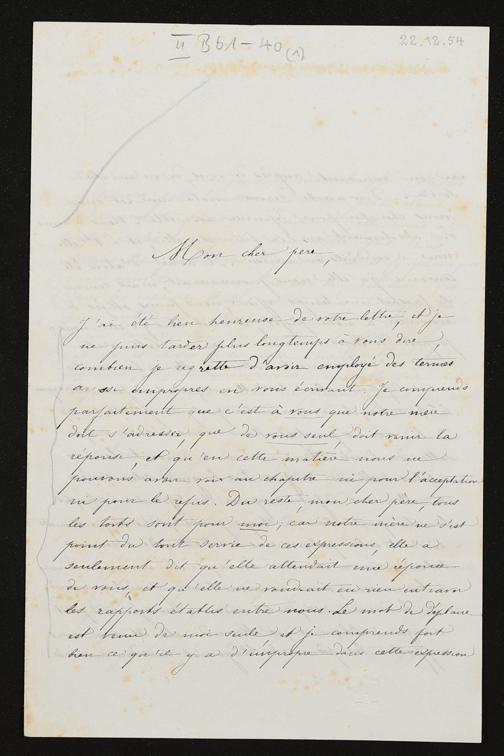 II B61-40(1)
22.12.54
Mon cher père,
J'ai été bien heureuse de votre lettre, et je
ne puis tarder plus longtemps à vous dire,
combien je regrette d'avoir employé des termes
aussi impropres en vous écrivant. Je comprends
parfaitement que c'est à vous que notre mère
doit s'adresser, que de vous seul, doit venir la
réponse, et qu'en cette matière nous ne
pouvons avoir voix au chapitre ni pour l'acceptation
ni pour le refus. Du reste, mon cher père, tous
les torts sont pour moi; car notre mère ne s'est
point du tout servie de ces expressions, elle a
seulement dit qu'elle attendait une réponse
de vous, et qu'elle ne voudrait en rien entraver
les rapports établis entre nous. Le mot de déplaire
est venu de moi seule et je comprends fort
bien ce qu'il y a d'impropre dans cette expression